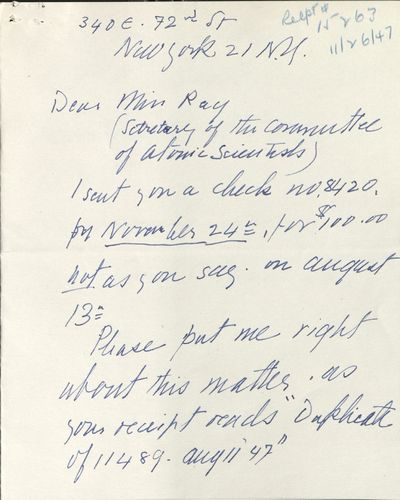 340 E. 72nd St
New York 21 N.Y.
Recpt #
15263
11/26/47
Dear Miss Ray
(Secretary of the committee
of atomic scientists)
I sent you a check no. 8420.
for November 24th, for $100.00
not as you say. on august
13th
Please put me right
about this matter. as
your receipt reads "Duplicate
of 11489. aug 11 '47"